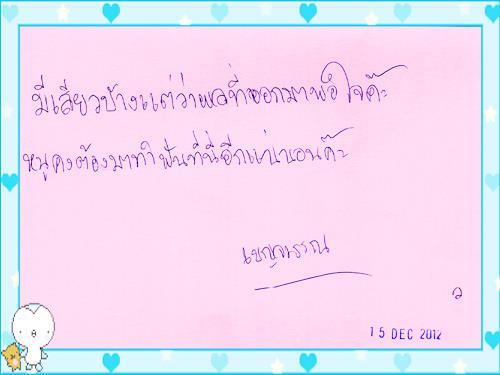 มีเสียวบ้างแต่ว่าผลที่ออกมาพอใจค๊ะ
หนูคงต้องมาทำฟันที่นี่อีกแน่นอนค๊ะ
เบญจวรรณ
15 DEC 2012